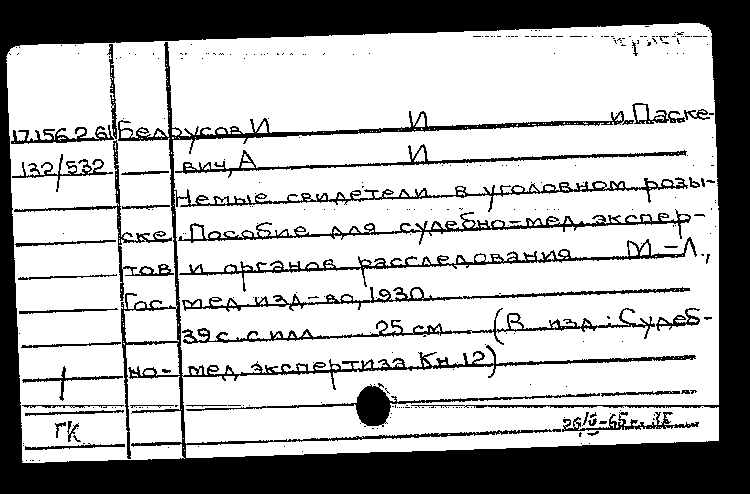 17.156.2.61 Белоусов, И И и Паске-
132/532 вич, А И
Немые свидетели в уголовном розы-
ске. Пособие для судебно-мед. экспер-
тов и органов расследования М.-Л.,
Гос. мед. изд-во, 1930.
39 с. с илл. 25 см. (В изд.: Судеб-
но-мед. экспертиза. Кн. 12)
ГК